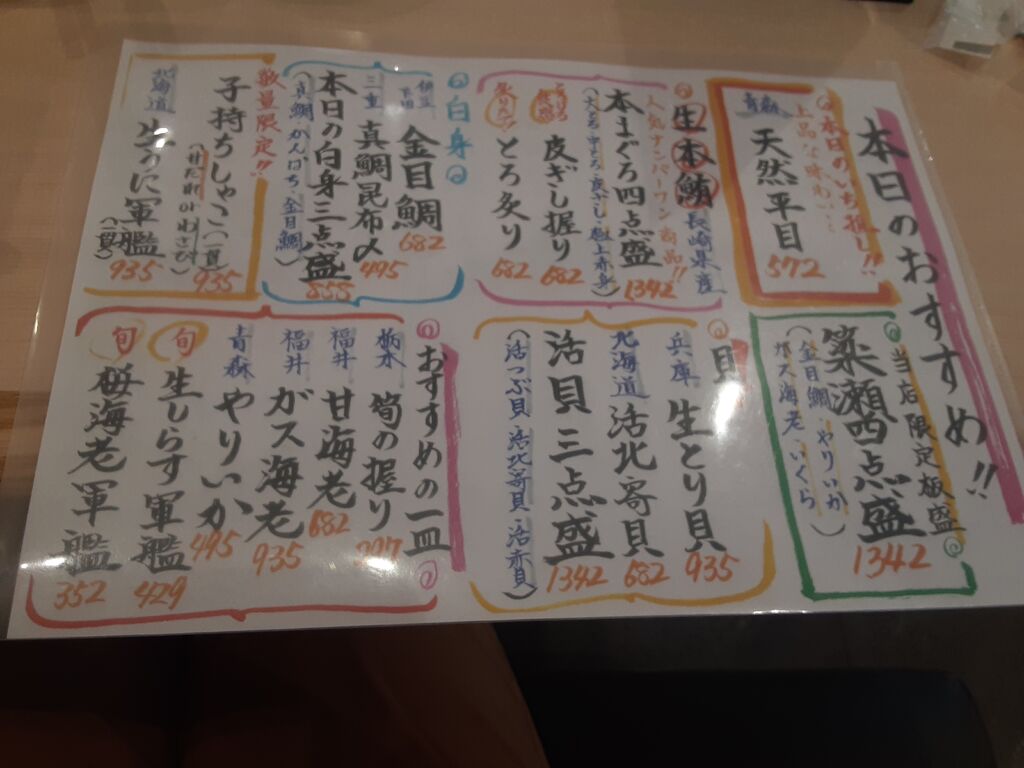 本日のおすすめ!!
本日のいち推し!!
上品な味わい…
青森
天然平目
572
生本鮪
長崎県産
人気ナンバーワン商品!!
本まぐろ四点盛
1342
皮ぎし握り
682
とろ炙り
682
白身
金目鯛
682
三重
真鯛昆布〆
495
本日の白身三点盛
858
(真鯛・かんぱち・金目鯛)
数量限定!!
子持ちしゃこ(一貫)
935
(甘だれorわさび)
北海道
生うに軍艦
(一貫)
935
当店限定板盛
簗瀬四点盛
1342
(金目鯛・やりいか
ガス海老・いくら)
貝
兵庫
生とり貝
935
北海道
活北寄貝
682
活貝三点盛
1342
(活つぶ貝 活北寄貝 活赤貝)
おすすめの一皿
栃木
筍の握り
福井
甘海老
682
福井
ガス海老
935
青森
やりいか
495
旬
生しらす軍艦
429
旬
桜海老軍艦
352